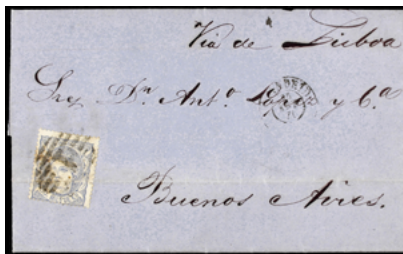 Via de Lisboa
Sres Dn. Anto. Lopez y Ca.
Buenos Aires.